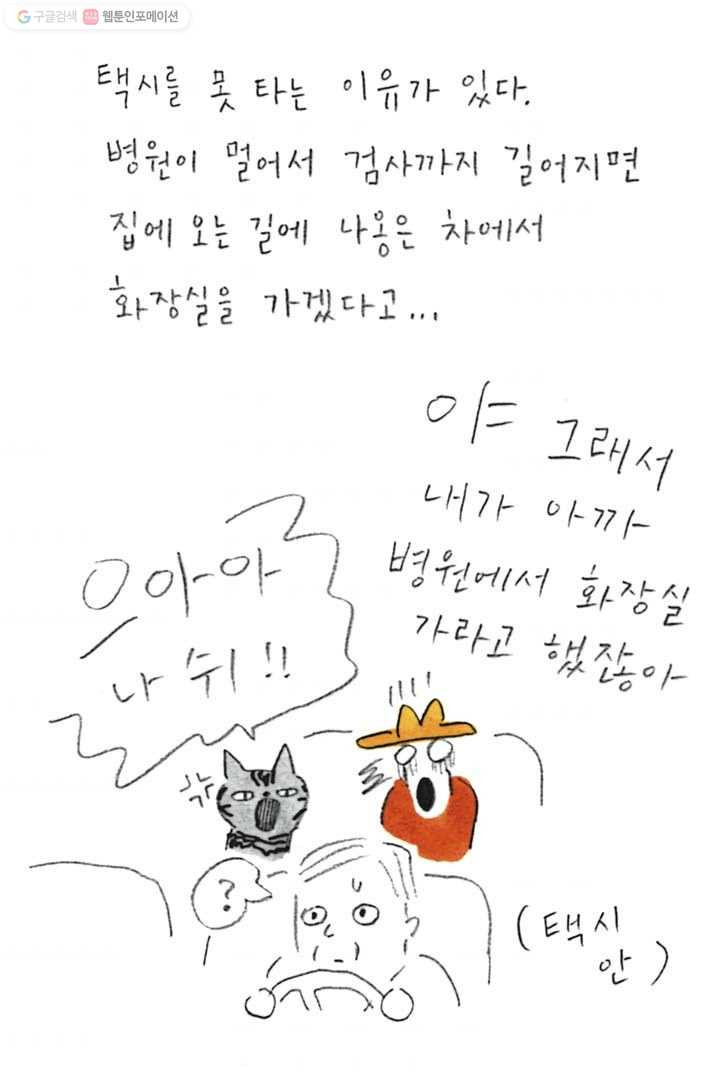 구글검색 웹툰인포메이션
택시를 못 타는 이유가 있다.
병원이 멀어서 검사까지 길어지면
집에 오는 길에 나옹은 차에서
화장실을 가겠다고...
야 그래서
내가 아까
병원에서 화장실
가라고 했잖아
으아아
나 쉬!!
?
(택시
안)